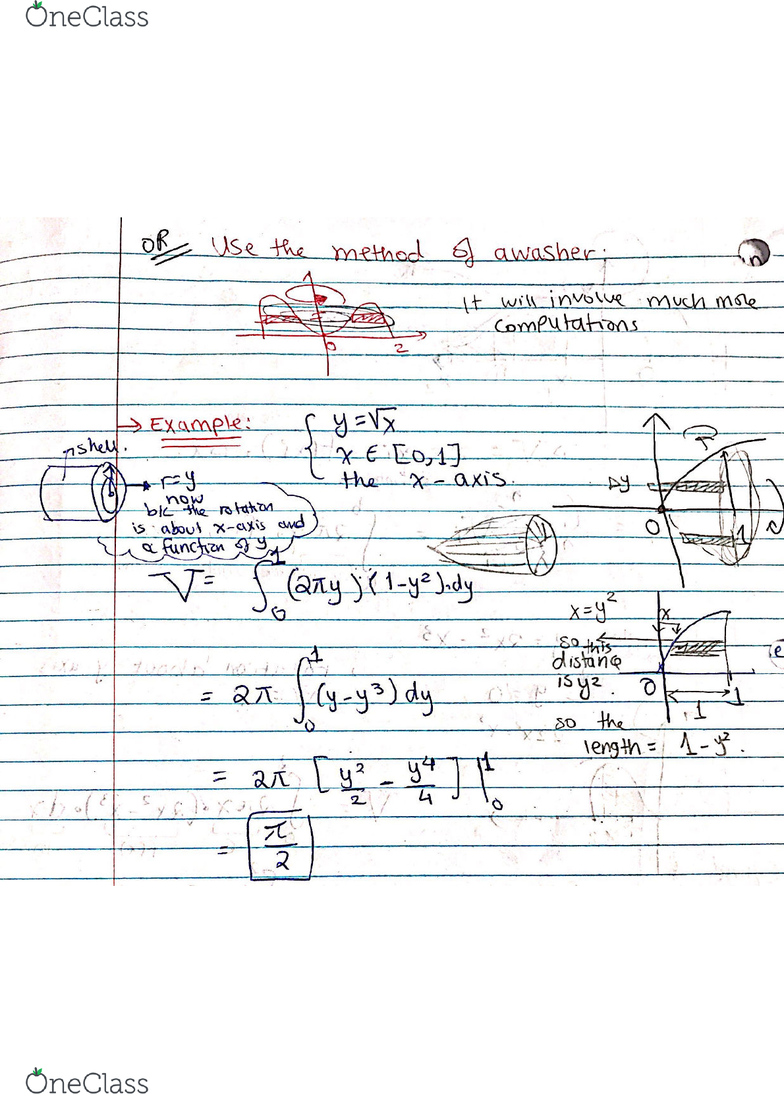 OneClass
OR Use the method of a washer.
It will involve much more
computations
0 2
→ Example: { y=√x
x ∈ [0,1]
the x-axis.
shell.
r=y
now
b/c the rotation
is about x-axis and
a function of y
Δy
0 1
V= ∫₀¹ (2πy)(1-y²).dy
x=y²
x
so this
distance
is y².
0 1
1
so the
length = 1-y².
= 2π ∫₀¹ (y-y³) dy
= 2π [y²/2 - y⁴/4] |₀¹
= π/2
OneClass